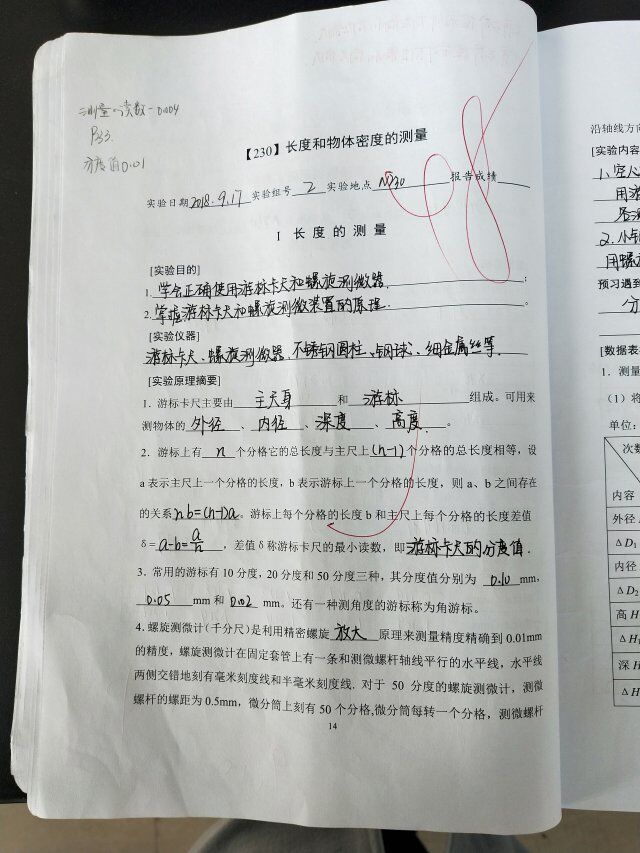 测量读数-0.004
P33.
分度值0.01
【230】长度和物体密度的测量
实验日期2018.9.17实验组号2实验地点N230报告成绩
98
I 长度的测量
[实验目的]
1.学会正确使用游标卡尺和螺旋测微器;
2.掌握游标卡尺和螺旋测微装置的原理。
[实验仪器]
游标卡尺、螺旋测微器、不锈钢圆柱、钢球、细金属丝等.
[实验原理摘要]
1.游标卡尺主要由主尺身和游标组成。可用来
测物体的外径、内径、深度、高度。
2.游标上有n个分格它的总长度与主尺上(n-1)个分格的总长度相等,设
a表示主尺上一个分格的长度,b表示游标上一个分格的长度,则a、b之间存在
的关系nb=(n-1)a。游标上每个分格的长度b和主尺上每个分格的长度差值
δ=a-b=a/n,差值δ称游标卡尺的最小读数,即游标卡尺的分度值.
3.常用的游标有10分度,20分度和50分度三种,其分度值分别为 0.10 mm,
0.05 mm和0.02 mm。还有一种测角度的游标称为角游标。
4.螺旋测微计(千分尺)是利用精密螺旋放大原理来测量精度精确到0.01mm
的精度,螺旋测微计在固定套管上有一条和测微螺杆轴线平行的水平线,水平线
两侧交错地刻有毫米刻度线和半毫米刻度线.对于50分度的螺旋测微计,测微
螺杆的螺距为0.5mm,微分筒上刻有50个分格,微分筒每转一个分格,测微螺杆
14
沿轴线方向
[实验内容
用游
2.小钢
用螺
预习遇到
分
[数据表
1.测量
(1)将
单位:
次数
内容
外径
ΔD₁
内径
ΔD₂
高H
ΔH
深H
ΔH